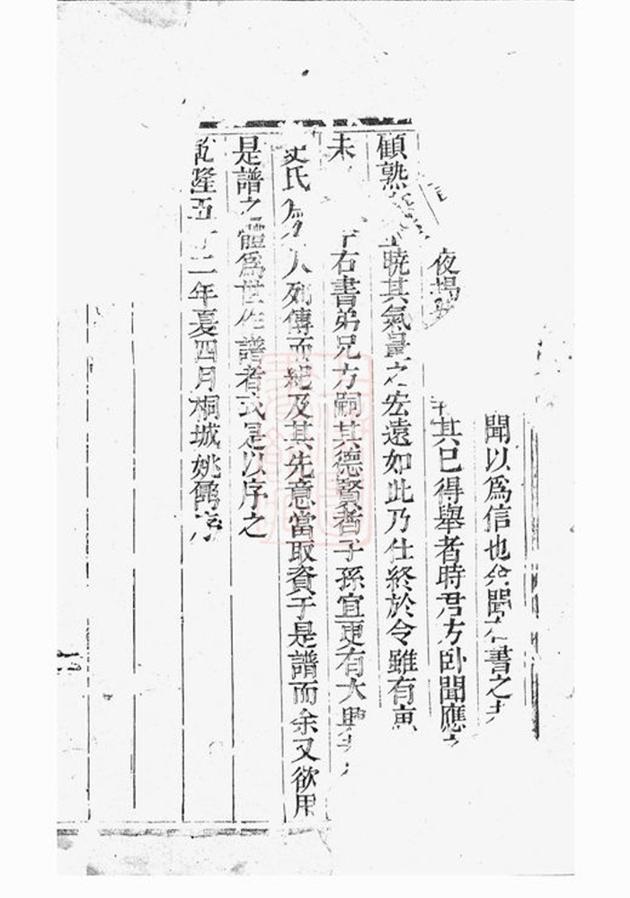 聞以為信也 聞 書之
夜揭 其已得舉者時君方臥聞應
顧熟 曉其氣量之宏遠如此乃仕終於令雖有
未 右書弟兄方嗣其德賢者子孫宜更有大興
氏為 人列傳而紀及其先意當取資于是譜而余又欲用
是譜之體為世作譜者式是以序之
乾隆五十二年夏四月桐城姚鼐序